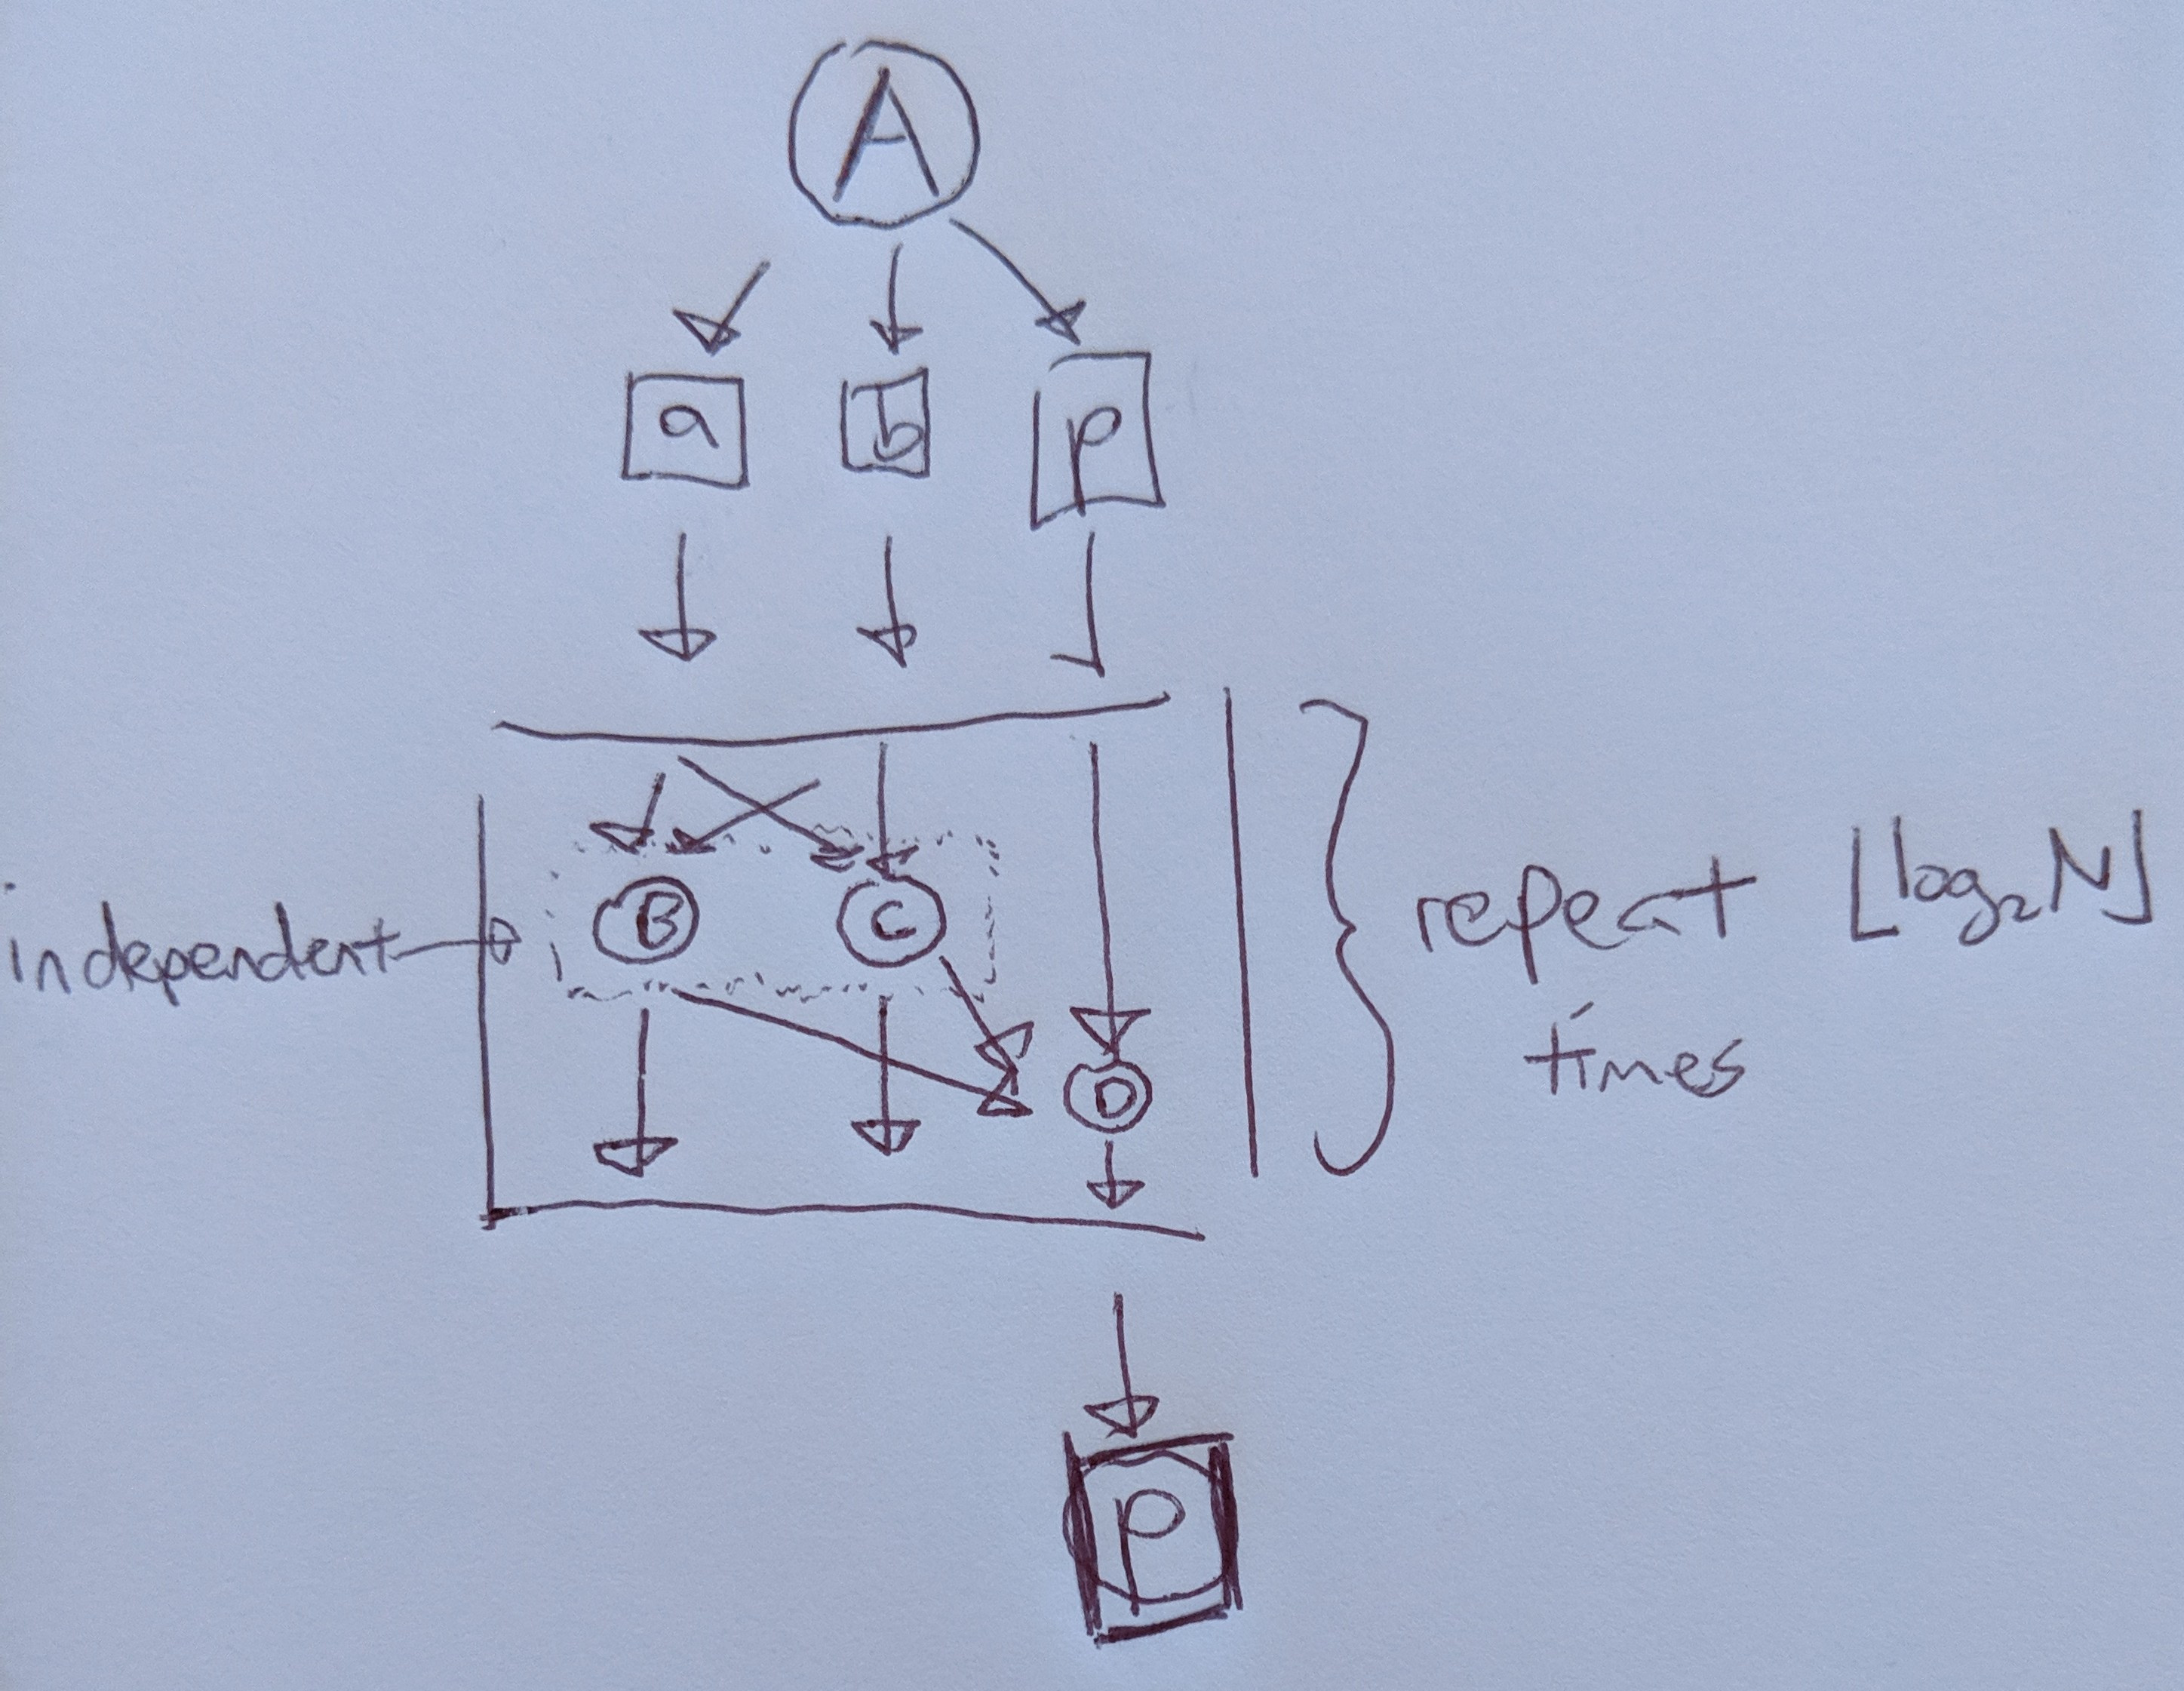 A
a b p
independent
B C
D
repeat ⌊log₂N⌋
times
p